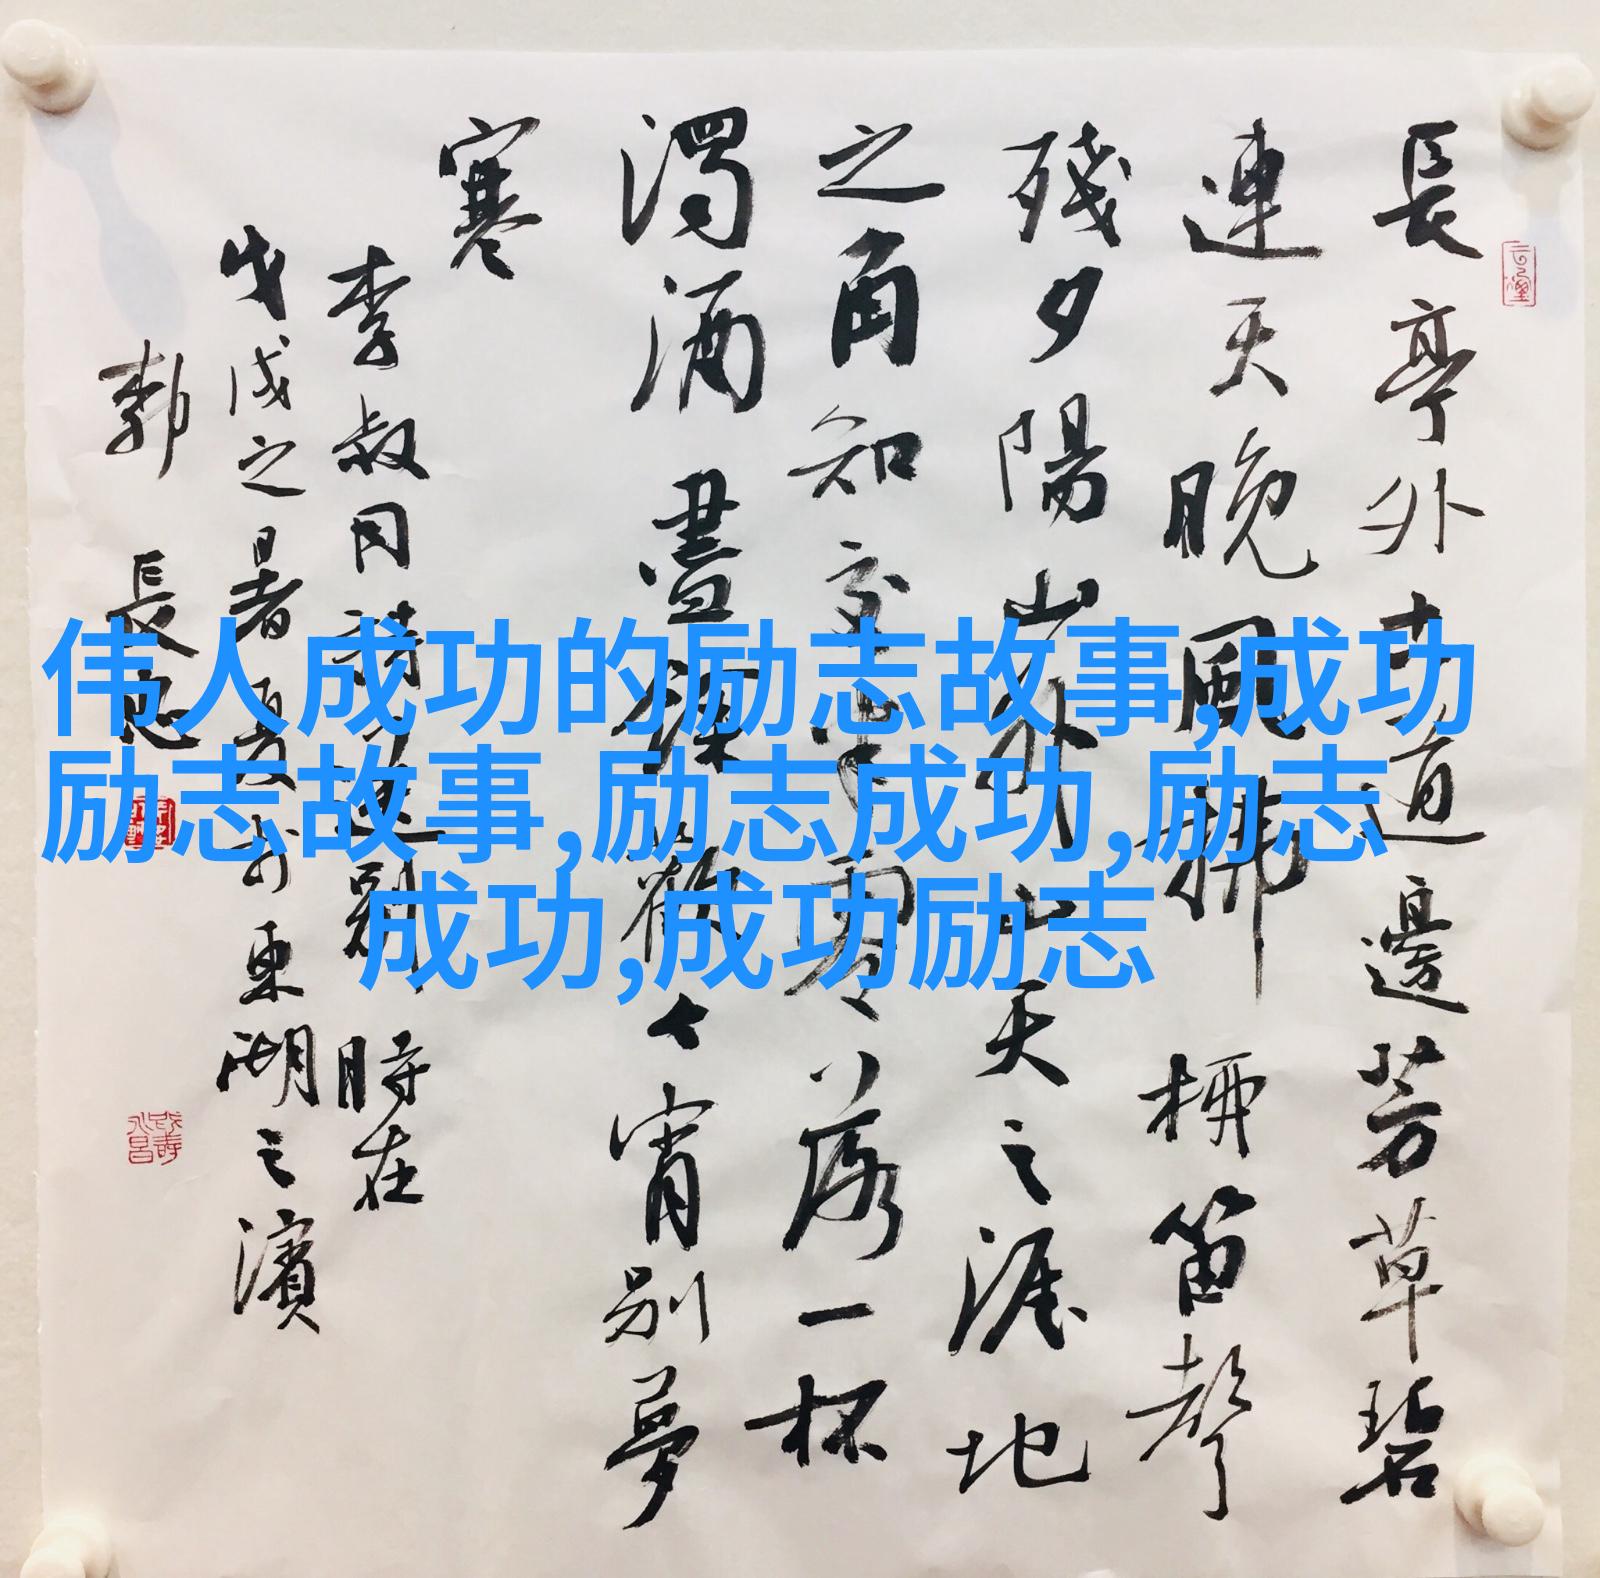 長亭外古道邊芳草碧
連天晚風拂柳笛聲
殘夕陽山外山天之涯地
之角知交半零落一杯
濁酒盡餘歡今宵別夢
寒
李叔同詩送別時在
戊戌之暑夏於東湖之濱
郭長
伟人成功的励志故事,成功
励志故事,励志成功,励志
成功,成功励志